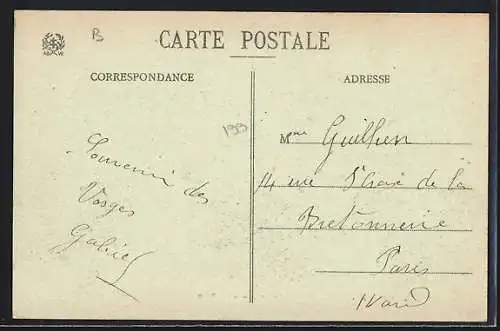 B
CARTE POSTALE
CORRESPONDANCE
ADRESSE
199
Souvenir des
Vosges
Gabriel
Mme Guilhen
14 rue Ste Croix de la
Bretonnerie
Paris